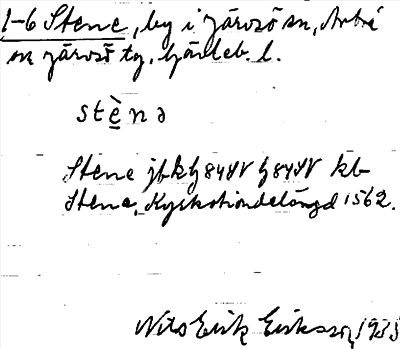 1-6 Stene, by i Järvsö sn, Arbrå
o Järvsö tg, Gävleb. l.
stènə
Stene jb kb
Stene, Kyrkotiondelängd 1562.
Nils Erik Eriksson, 1935